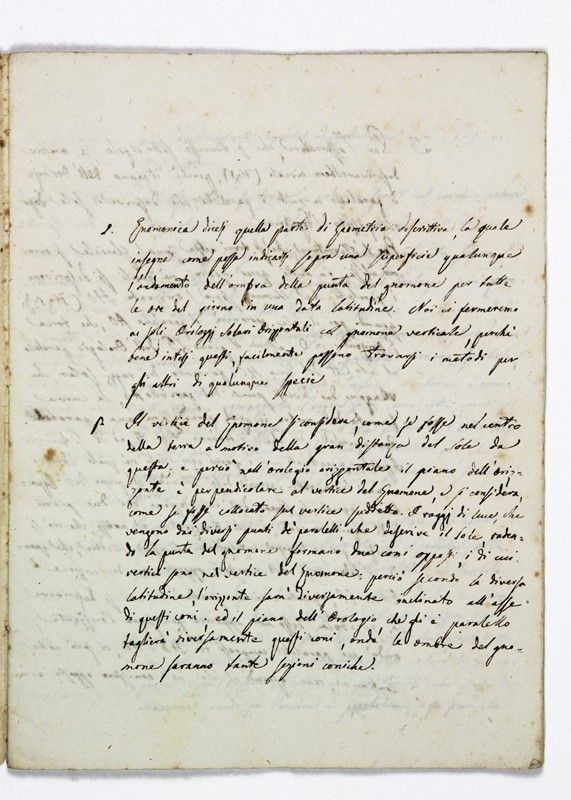 1. Gnomonica dicesi quella parte di Geometria descrittiva, la quale
insegna come possa indicarsi sopra una superficie qualunque
l'andamento dell'ombra della punta del gnomone per tutte
le ore del giorno in una data latitudine. Noi ci fermeremo
ai soli Orologj solari Orizzontali col gnomone verticale, perchè
bene intesi questi, facilmente possono trovarsi i metodi per
gli altri di qualunque specie
Il vertice del Gnomone si considera, come se fosse nel centro
della terra a motivo della gran distanza del Sole da
questa; e perciò nell'orologio orizzontale il piano dell'Oriz=
zonte è perpendicolare al vertice del Gnomone, e si considera,
come se fosse collocato sul vertice suddetto. I raggi di luce, che
vengono dai diversi punti de' paralelli che descrive il Sole, raden=
do la punta del gnomone formano due coni opposti, i di cui
vertici sono nel vertice del Gnomone: perciò secondo la diversa
latitudine l'orizzonte sarà diversamente inclinato all'asse
di questi coni; ed il piano dell'Orologio che gli è paralello
taglierà diversamente questi coni, onde le ombre del gno=
mone saranno tante sezioni coniche.